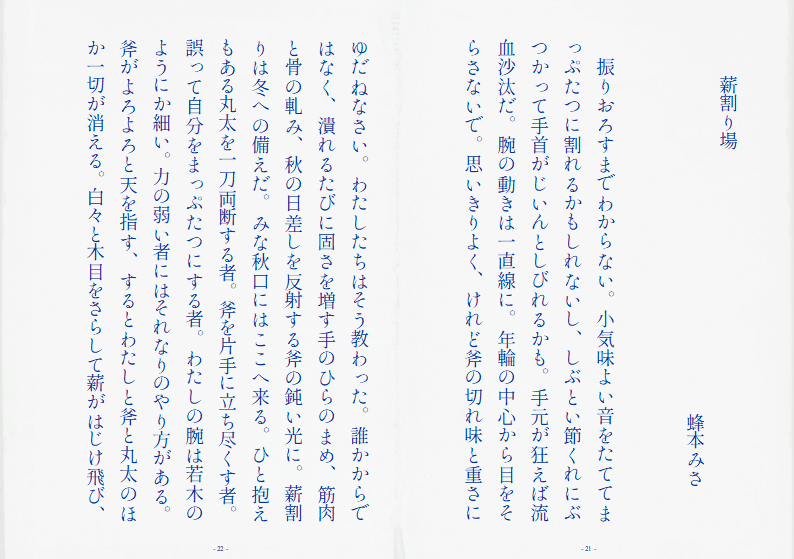 薪割り場
蜂本みさ
振りおろすまでわからない。小気味よい音をたててま
っぷたつに割れるかもしれないし、しぶとい節くれにぶ
つかって手首がじいんとしびれるかも。手元が狂えば流
血沙汰だ。腕の動きは一直線に。年輪の中心から目をそ
らさないで。思いきりよく、けれど斧の切れ味と重さに
- 21 -
ゆだねなさい。わたしたちはそう教わった。誰かからで
はなく、潰れるたびに固さを増す手のひらのまめ、筋肉
と骨の軋み、秋の日差しを反射する斧の鈍い光に。薪割
りは冬への備えだ。みな秋口にはここへ来る。ひと抱え
もある丸太を一刀両断する者。斧を片手に立ち尽くす者。
誤って自分をまっぷたつにする者。わたしの腕は若木の
ようにか細い。力の弱い者にはそれなりのやり方がある。
斧がよろよろと天を指す、するとわたしと斧と丸太のほ
か一切が消える。白々と木目をさらして薪がはじけ飛び、
- 22 -